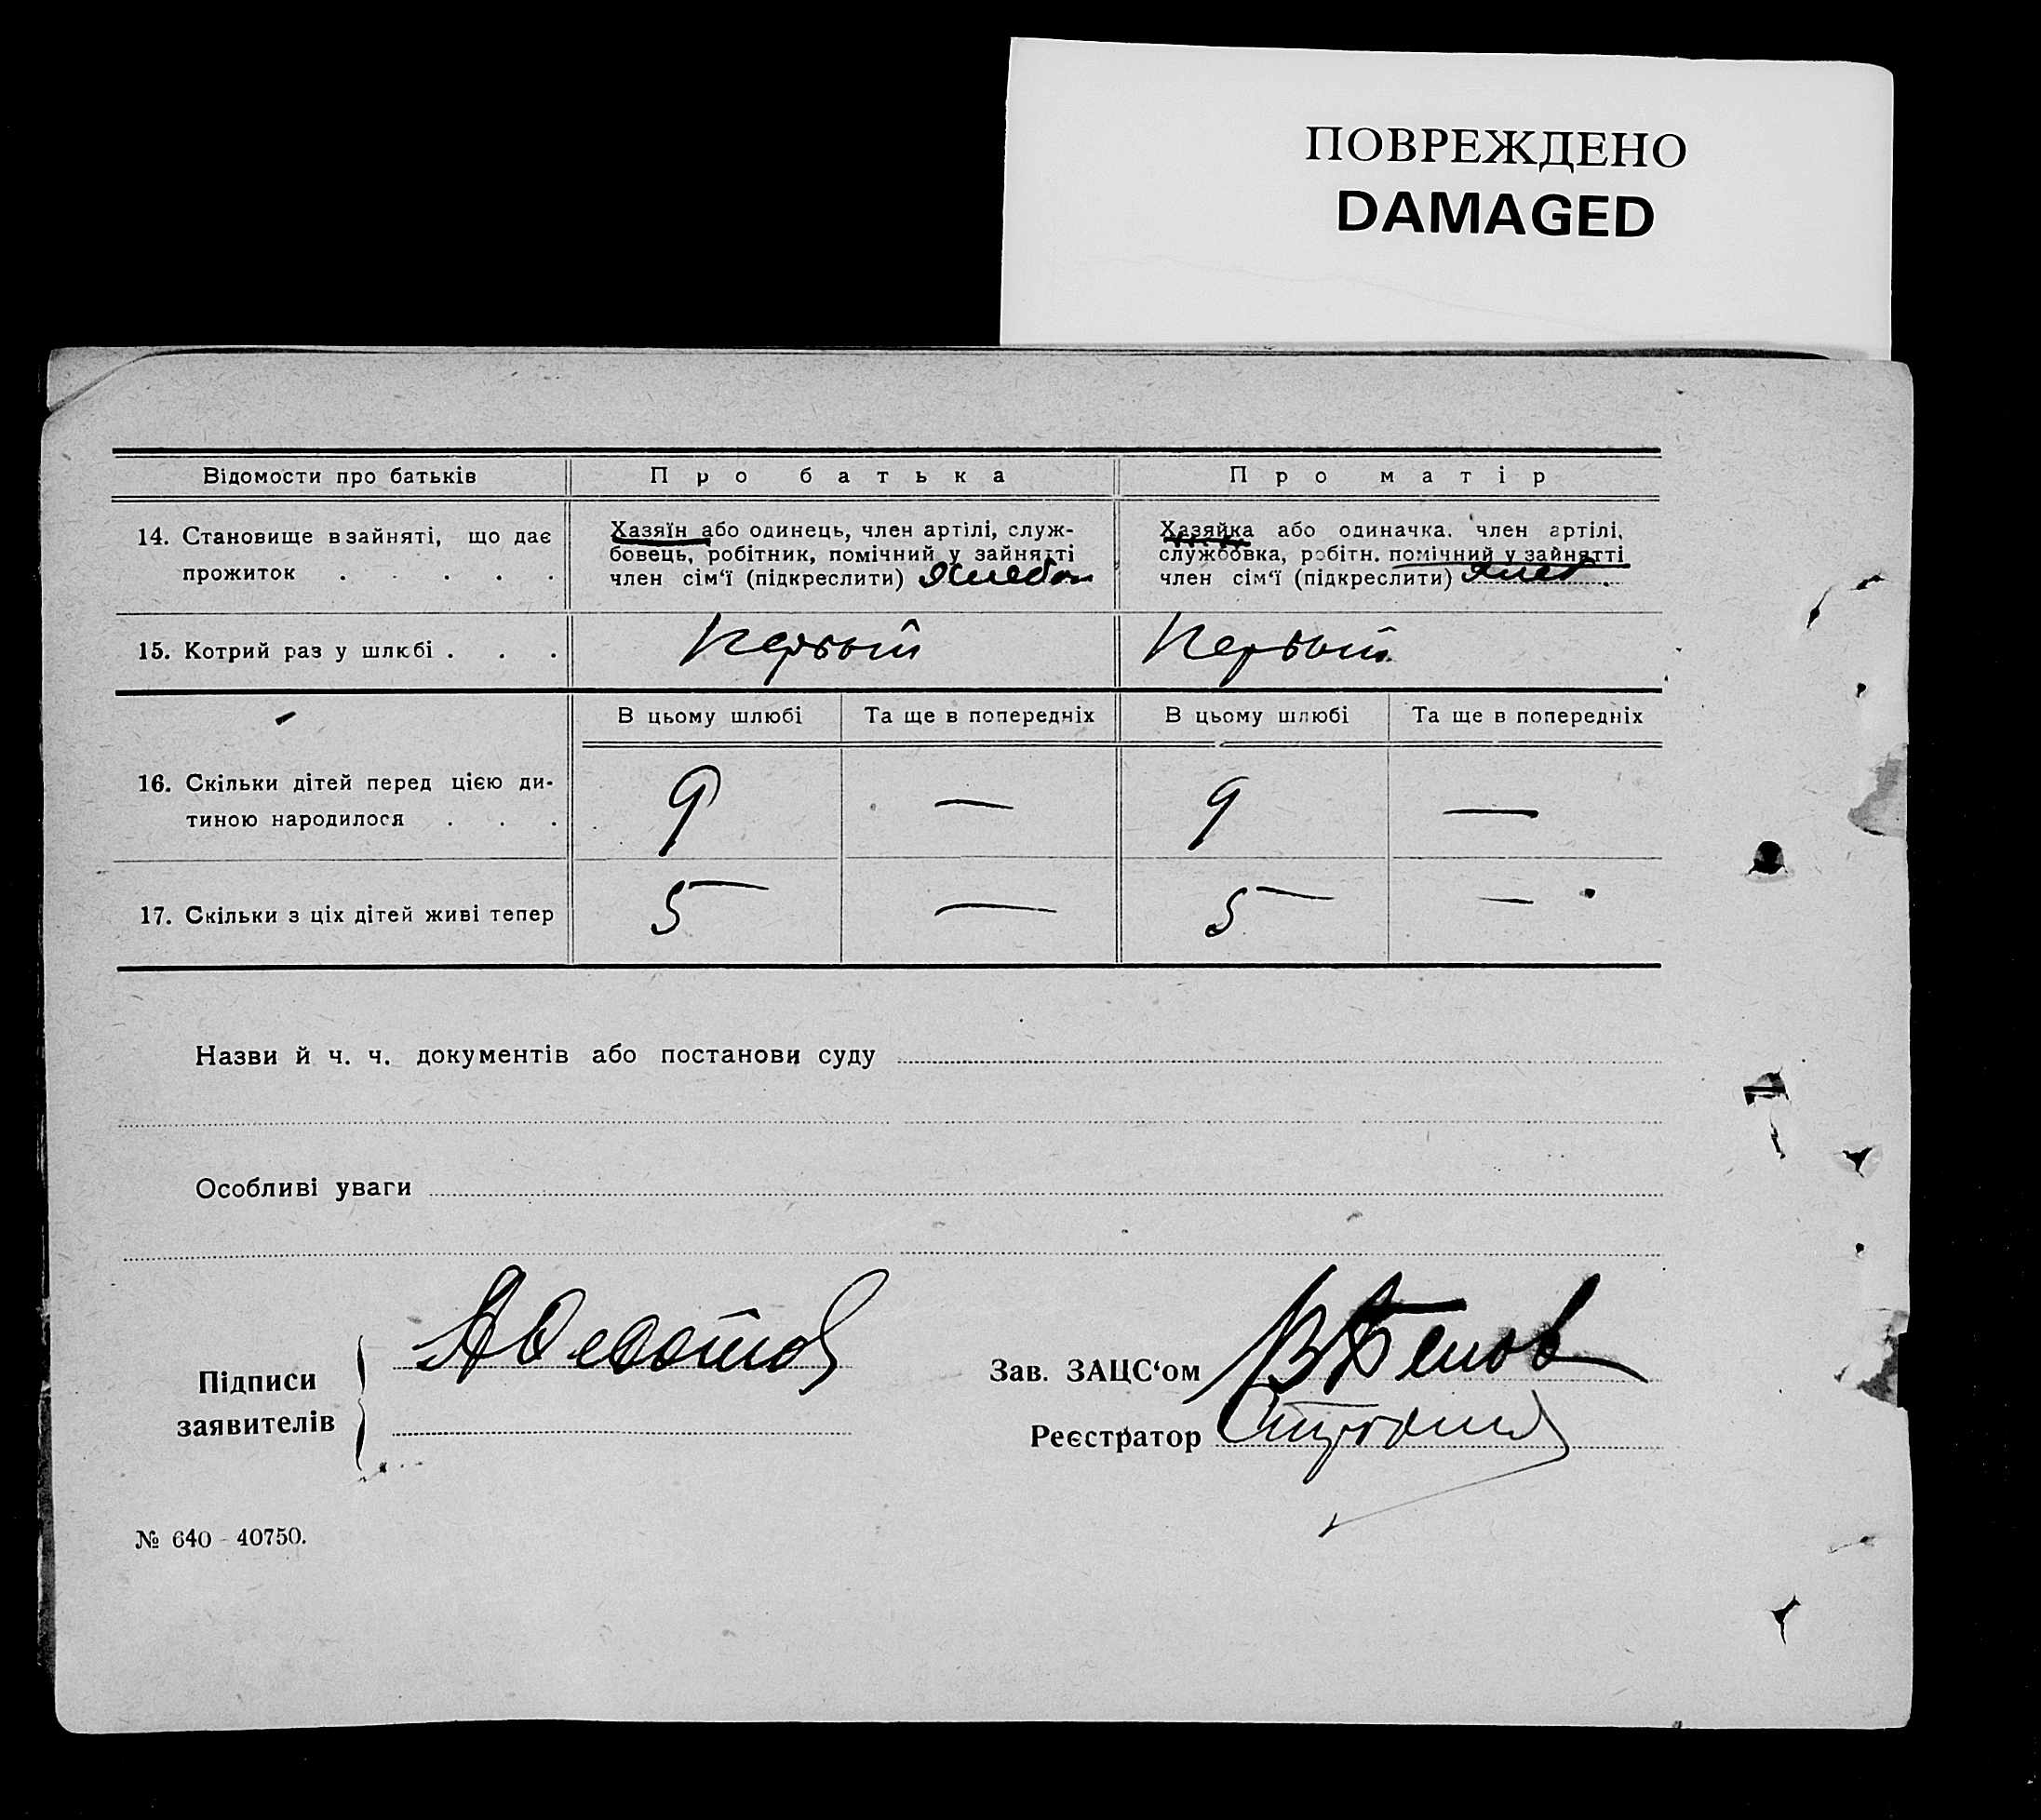 ПОВРЕЖДЕНО
DAMAGED
Відомости про батьків
Про батька
Про матір
14. Становище в зайняті, що дає
прожиток . . . . .
Хазяїн або одинець, член артілі, служ-
бовець, робітник, помічний у зайнятті
член сім‘ї (підкреслити)
Хазяйка або одиначка. член артілі,
службовка, робітн. помічний у зайнятті
член сім‘ї (підкреслити)
15. Котрий раз у шлюбі . . .
Первый
Первый
В цьому шлюбі
Та ще в попередніх
В цьому шлюбі
Та ще в попередніх
16. Скільки дітей перед цією ди-
тиною народилося . . .
9 — 9 —
17. Скільки з ціх дітей живі тепер
5 — 5 —
Назви й ч. ч. документів або постанови суду
Особливі уваги
Підписи
заявителів
Зав. ЗАЦС‘ом
Реєстратор
№ 640 - 40750.